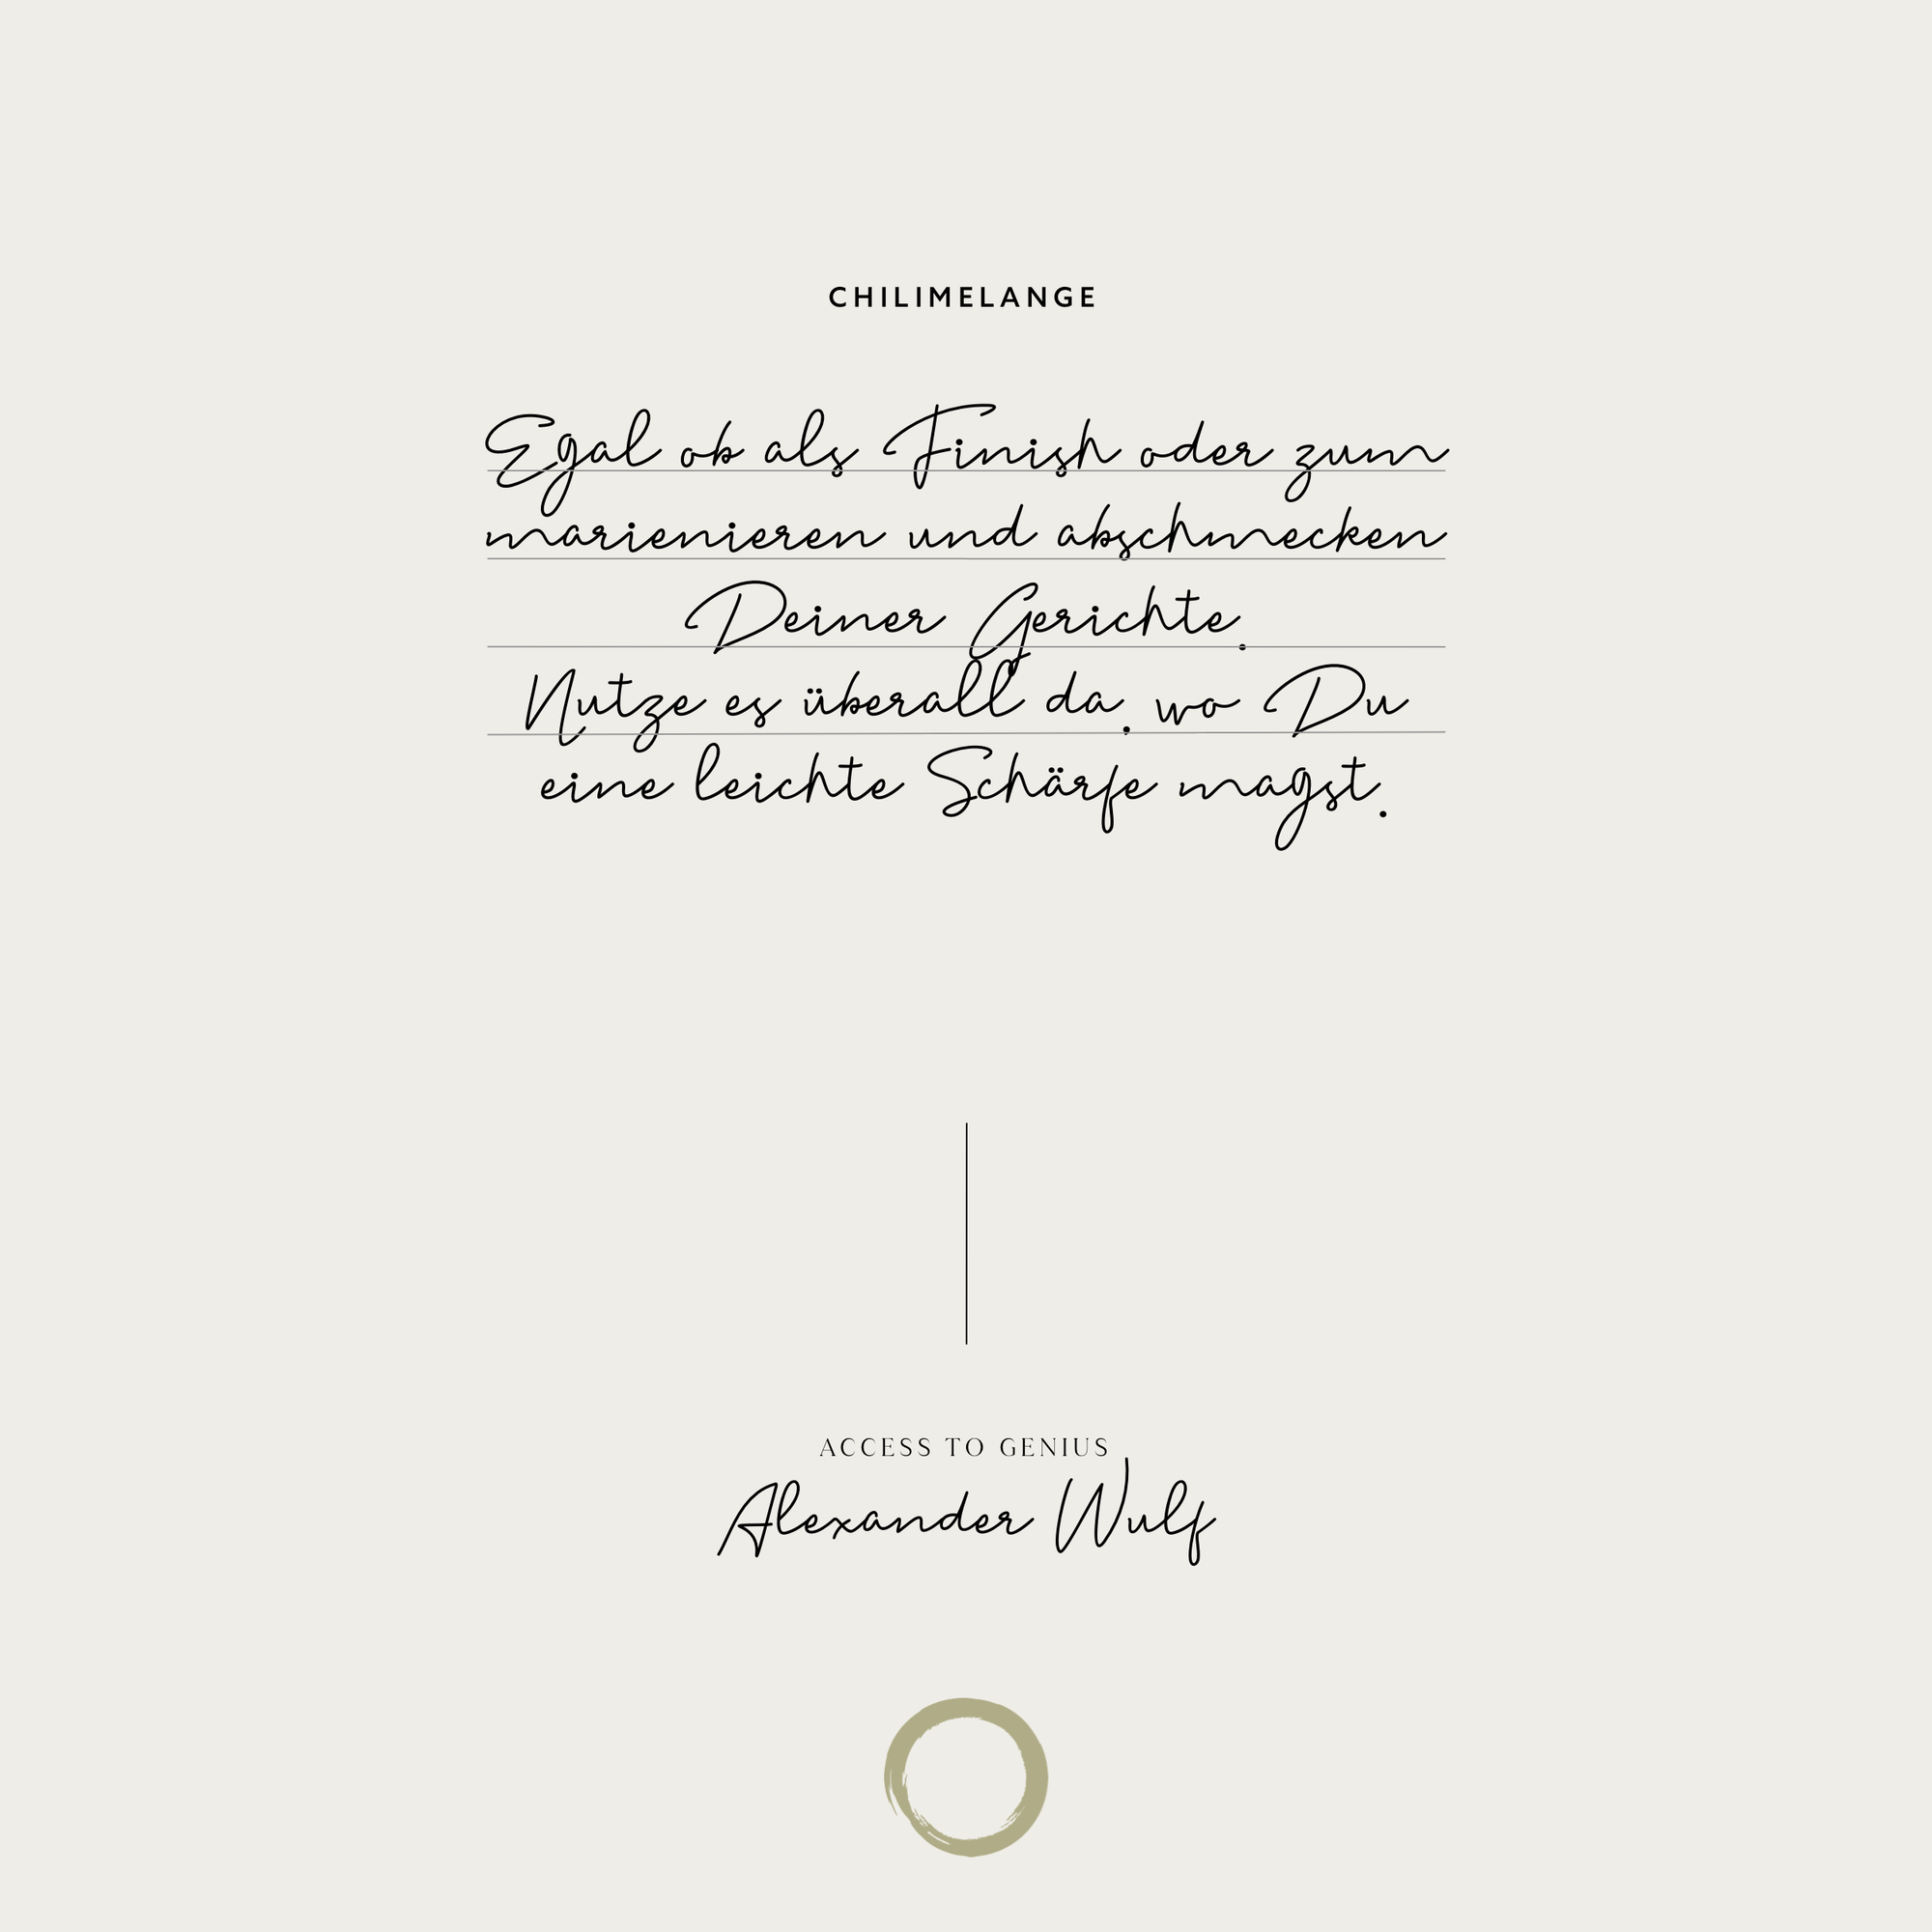 CHILIMELANGE
Egal ob als Finish oder zum
marienieren und abschmecken
Deiner Gerichte.
Nutze es überall da, wo Du
eine leichte Schärfe magst.
ACCESS TO GENIUS
Alexander Wulf